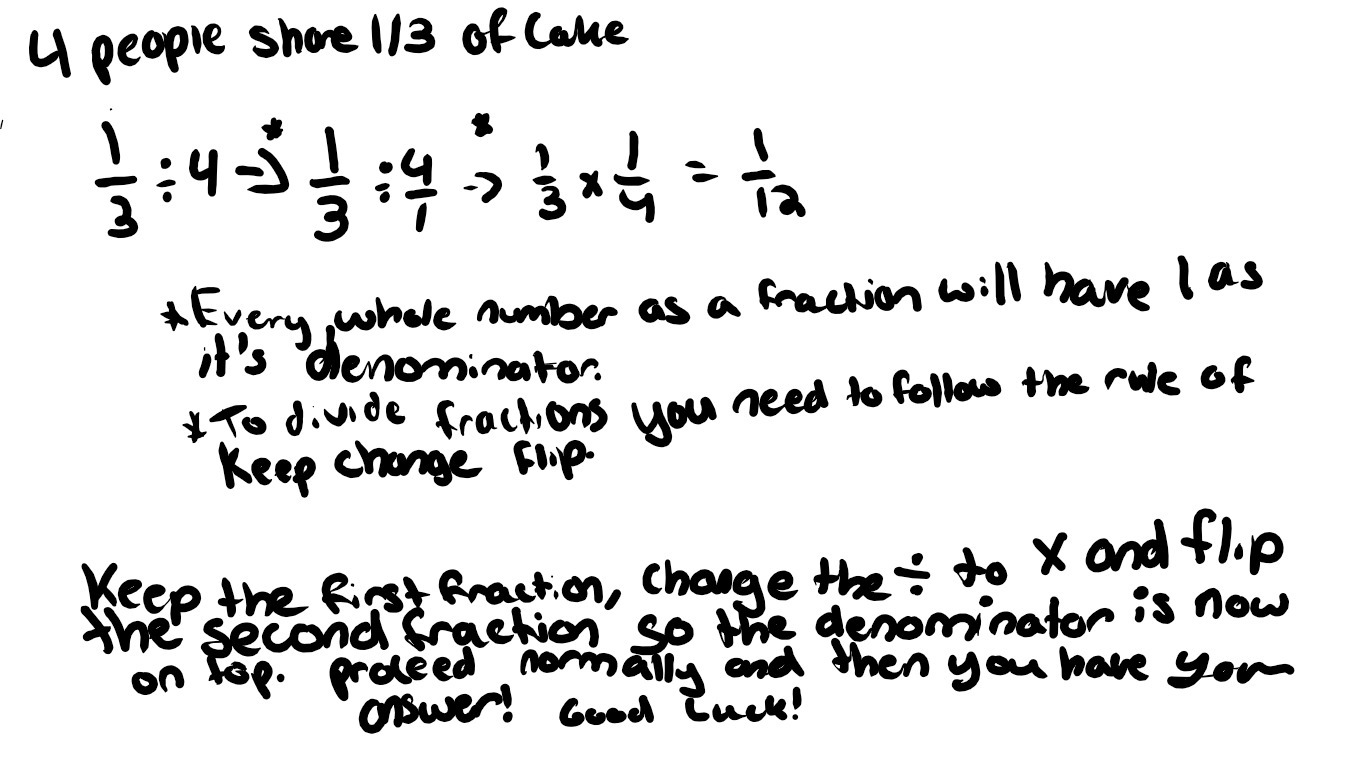 4 people share 1/3 of Cake
1/3 ÷ 4 →* 1/3 ÷ 4/1 →* 1/3 x 1/4 = 1/12
*Every whole number as a fraction will have 1 as
it's denominator.
*To divide fractions you need to follow the rule of
Keep change flip.
Keep the first fraction, change the ÷ to x and flip
the second fraction so the denominator is now
on top. proceed normally and then you have your
answer! Good Luck!